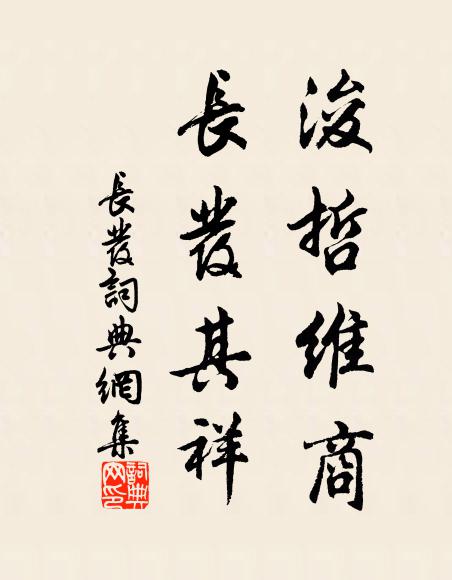 浚哲維商
長發其祥
長發詞典網集
詞典網印